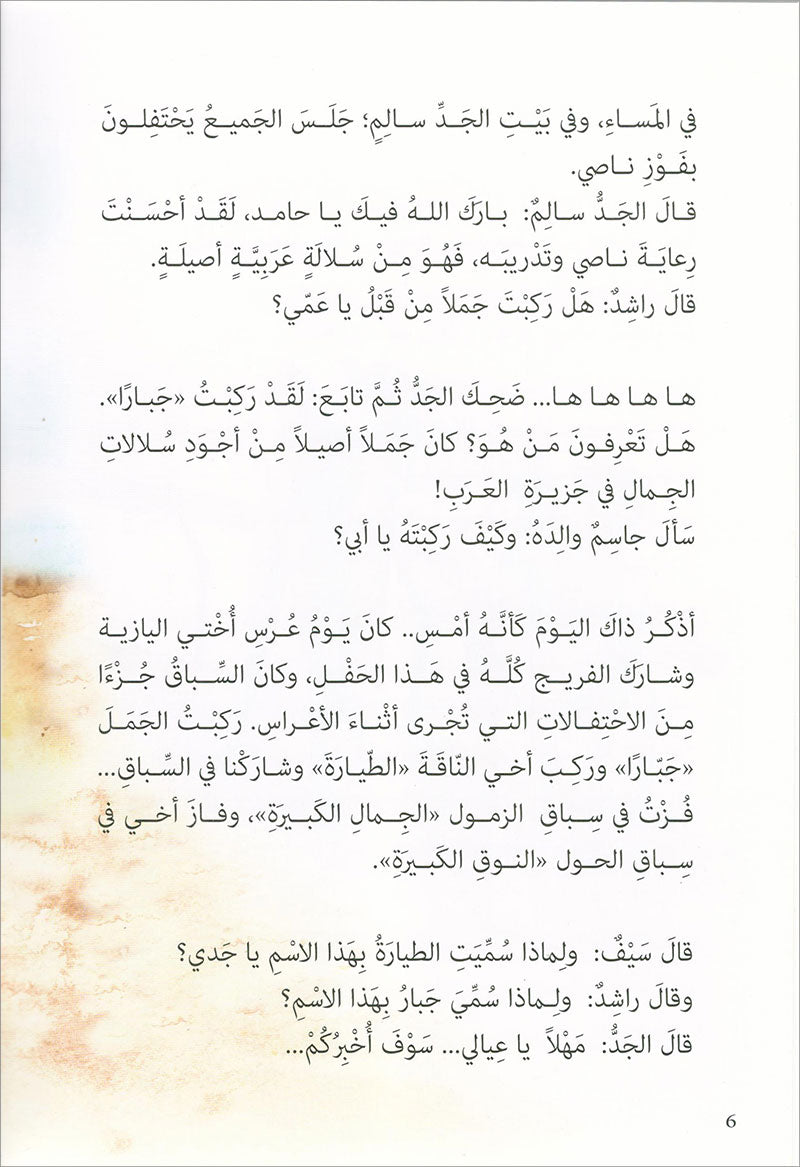 في المَساءِ، وفي بَيْتِ الجَدِّ سالِمٍ؛ جَلَسَ الجَميعُ يَحْتَفِلونَ
بفَوْزِ ناصي.
قالَ الجَدُّ سالِمٌ: بارَكَ اللهُ فيكَ يا حامد، لَقَدْ أحْسَنْتَ
رِعايَةَ ناصي وتَدْريبَه، فَهُوَ مِنْ سُلالَةٍ عَرَبِيَّةٍ أصيلَةٍ.
قالَ راشِدٌ: هَلْ رَكِبْتَ جَمَلاً مِنْ قَبْلُ يا عَمّي؟
ها ها ها ها... ضَحِكَ الجَدُّ ثُمَّ تابَعَ: لَقَدْ رَكِبْتُ «جَبارًا».
هَلْ تَعْرِفونَ مَنْ هُوَ؟ كانَ جَمَلاً أصيلاً مِنْ أجْوَدِ سُلالاتِ
الجِمالِ في جَزيرَةِ العَرَبِ!
سَألَ جاسِمٌ والِدَهُ: وكَيْفَ رَكِبْتَهُ يا أبي؟
أذْكُرُ ذاكَ اليَوْمَ كَأنَّهُ أمْسِ.. كانَ يَوْمُ عُرْسِ أُخْتي اليازية
وشارَكَ الفريج كُلَّهُ في هَذا الحَفْلِ، وكانَ السِّباقُ جُزْءًا
مِنَ الاحْتِفالاتِ التي تُجْرى أثْناءَ الأعْراسِ. رَكِبْتُ الجَمَلَ
«جَبّارًا» ورَكِبَ أخي النّاقَةَ «الطّيارَةَ» وشارَكْنا في السِّباقِ...
فُزْتُ في سِباقِ الزمول «الجِمالِ الكَبيرَةِ»، وفازَ أخي في
سِباقِ الحول «النوقِ الكَبيرَةِ».
قالَ سَيْفٌ: ولِماذا سُمِّيَتِ الطيارَةُ بِهَذا الاسْمِ يا جَدي؟
وقالَ راشِدٌ: ولِماذا سُمِّيَ جَبارُ بِهَذا الاسْمِ؟
قالَ الجَدُّ: مَهْلاً يا عِيالي... سَوْفَ أُخْبِرُكُمْ...
6